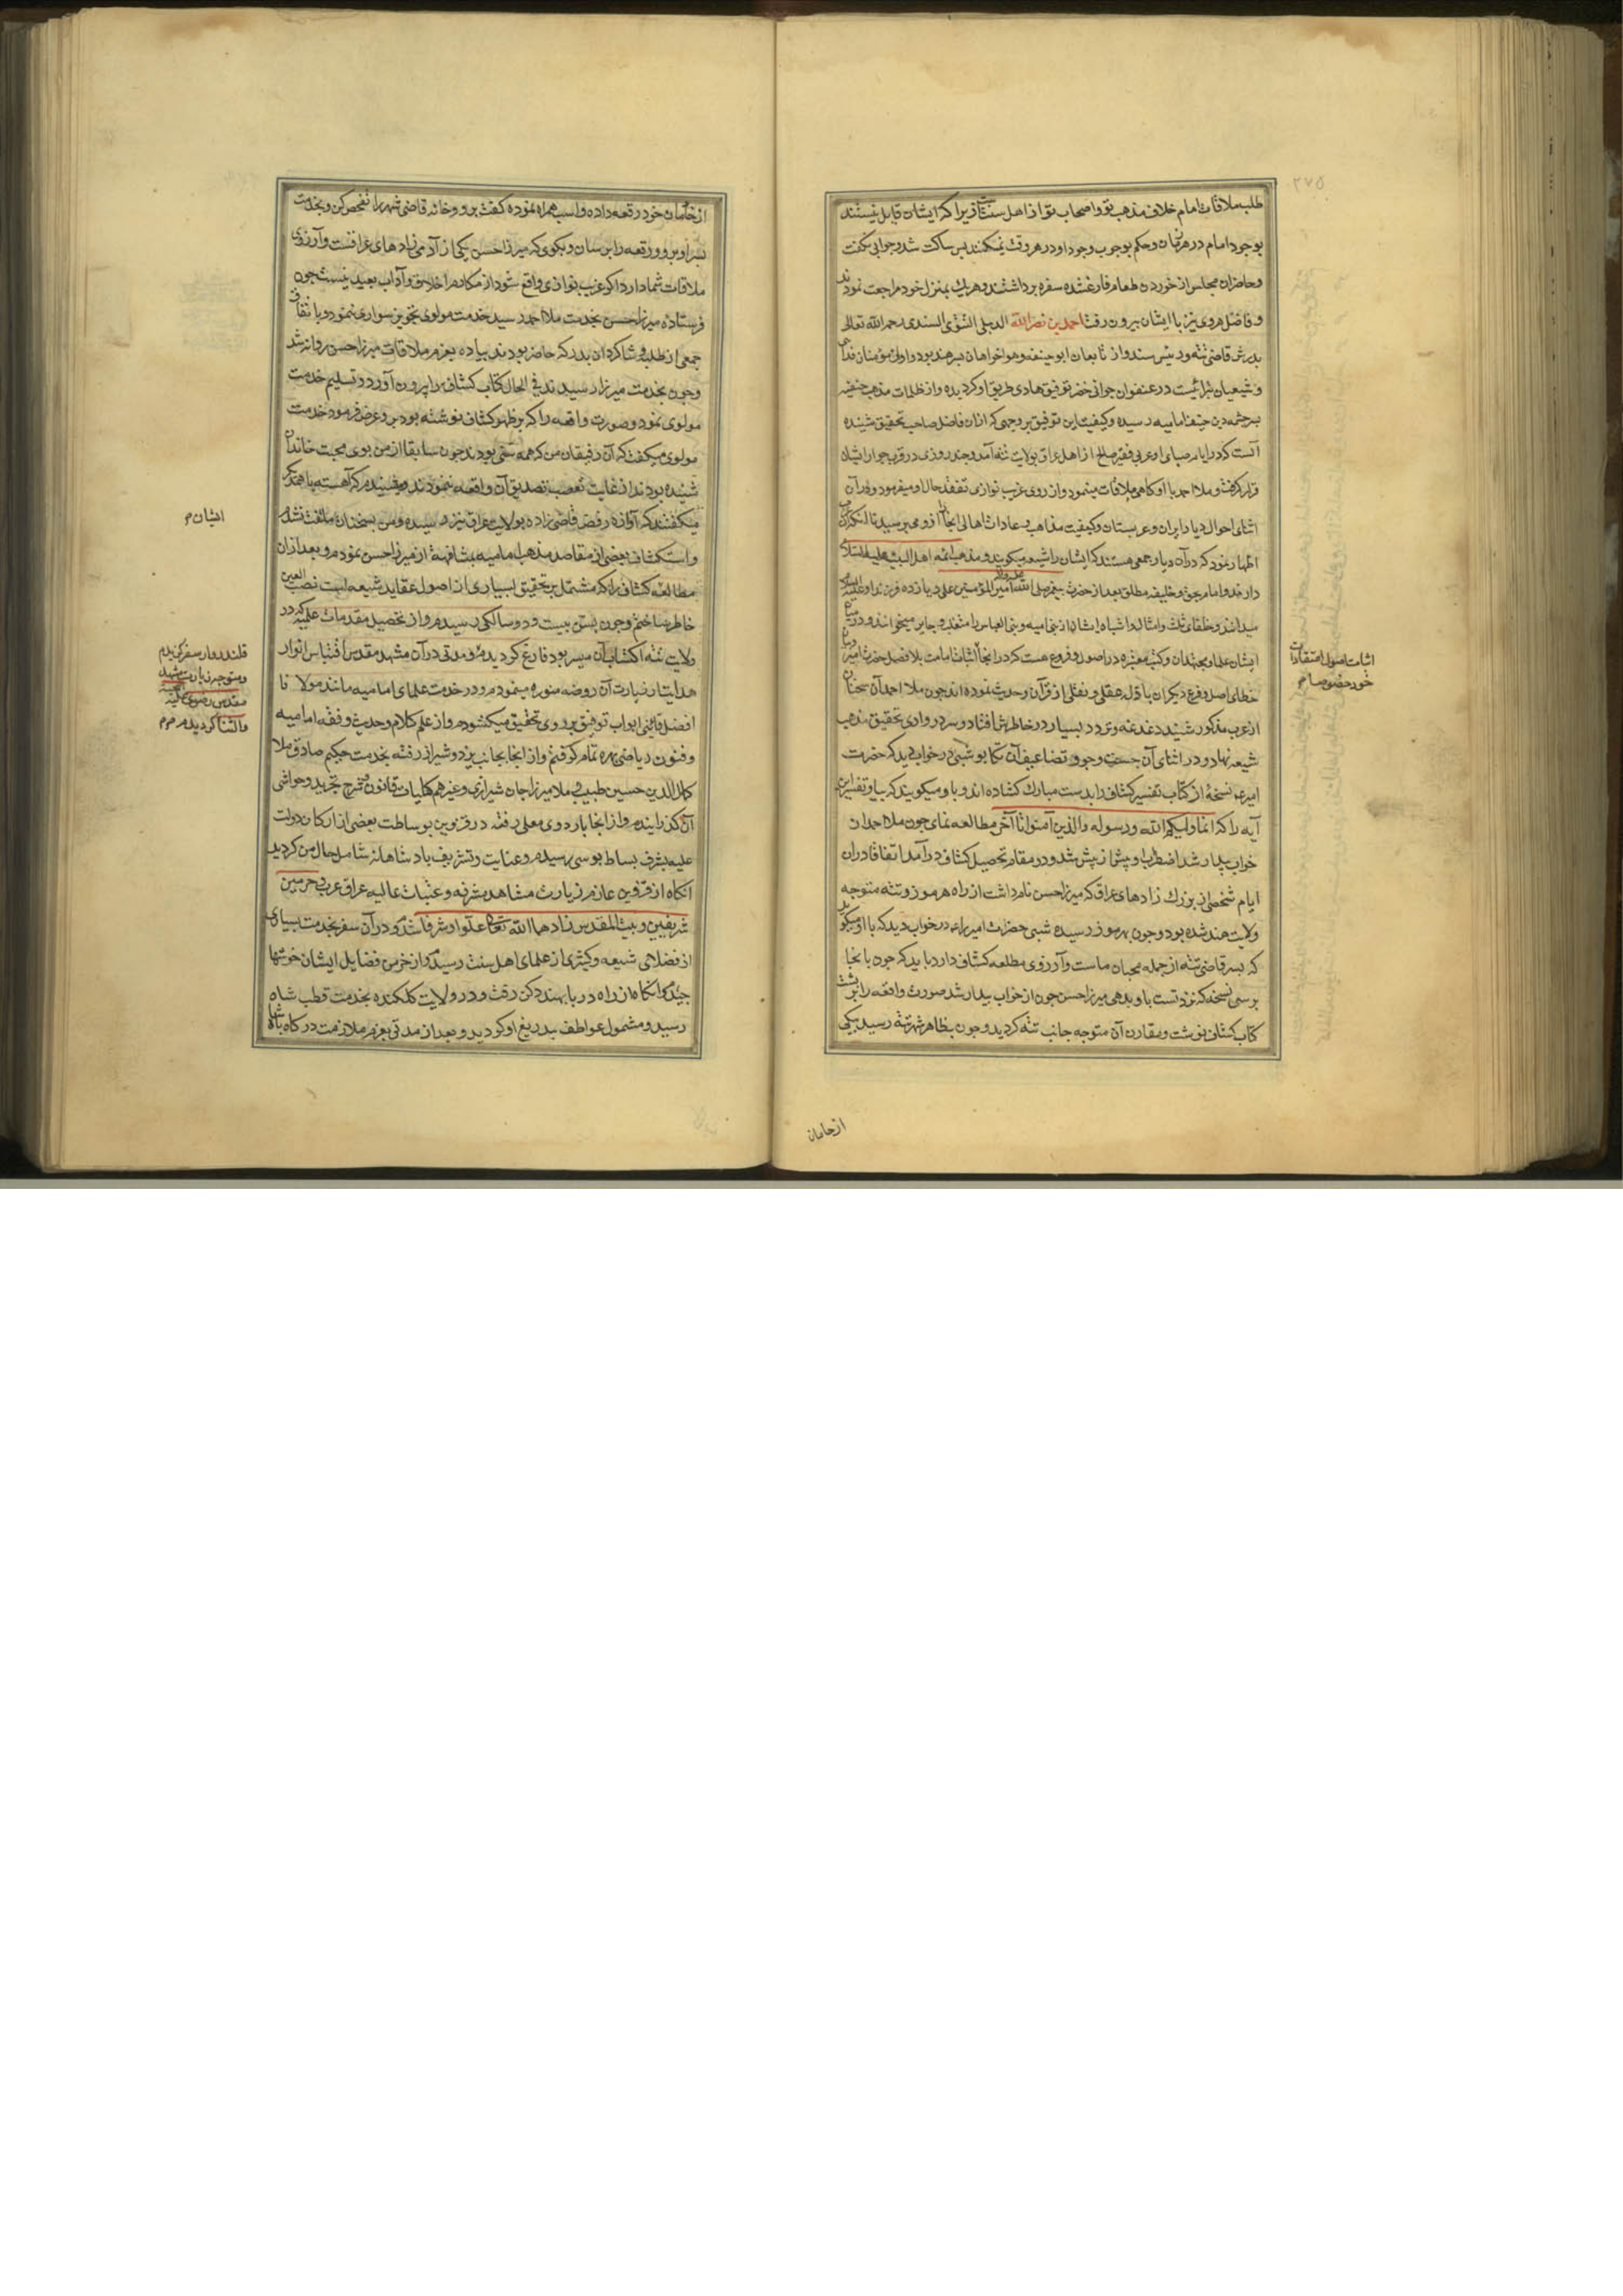 طلب ملاقات امام خلاف مذهب تو و اصحاب تو از اهل سنت زیرا که ایشان قایل نیستند
بوجود امام در هر زمان و حکم بوجوب وجود او در هر وقت نمیکنند پس ساکت شد و جوابی نگفت
و حاضران مجلس از خوردن طعام فارغ شده سفره برداشتند و هر یك بمنزل خود مراجعت نمودند
و فاضل هروی نیز با ایشان بیرون رفت احمد بن نصر الله الدبیلی التتوی السندی رحمه الله تعالی
پدرش قاضی تته و رئیس سند و از تابعان ابو حنیفه و هواخواهان پسر هند بود و او از مؤمنان
و شیعیان در عنفوان جوانی خضر توفیق هادی طریق او کردیده و از ظلمات مذهب حنفیه
بسرچشمه دین حنیف امامیه رسیده و کیفیت این توفیق بر وجهی که از ان فاضل صاحب تحقیق شنیده
آنست که در ایام صبای او عربی فقیر صالح از اهل عراق بولایت تته آمد و چند روزی در قرب جوار ایشان
قرار کرفت و ملا احمد با او کاهی ملاقات مینمود و از روی غریب نوازی تفقد حال او میفرمود و در آن
اثنای احوال دیار ایران و عربستان و کیفیت مذاهب و عادات اهالی آنجا از وی میپرسید تا آنکه آن
اظهار نمود که در آن دیار جمعی هستند که ایشان را شیعه میکویند و مذهب ائمه اهل البیت علیهم السلام
دارند و امام بحق و خلیفه مطلق بعد از حضرت پیغمبر صلی الله امیر المؤمنین علی و یازده فرزند او علیهم السلام
میدانند و خلفای ثلث و امثال و اشباه ایشان از بنی امیه و بنی العباس را متغلب و جایر میخوانند و در میان
ایشان علما و مجتهدان و کتب معتبره در اصول و فروع هست که در آنجا اثبات امامت بلا فصل حضرت امیر
خطای اصل و فرع دیکران بادله عقلی و نقلی از قرآن و حدیث نموده اند چون ملا احمد آن سخنان
از عرب مذکور شنید دغدغه و تردد بسیار در خاطرش افتاد و سر در وادی تحقیق مذهب
شیعه نهاد و در اثنای آن جست و جو و تضاعیف آن تکاپو شبی در خواب دید که حضرت
امیر نسخهٔ از کتاب تفسیر کشاف را بدست مبارك کشاده اند و با او میکویند که بیا و تفسیر این
آیه را که انما ولیکم الله ورسوله والذین آمنوا تا آخر مطالعه نمای چون ملا احمد از ان
خواب بیدار شد اضطراب او بیش از پیش شد و در مقام تحصیل کشاف درآمد اتفاقا در ان
ایام شخصی از بزرك زادهای عراق که میرزا حسن نام داشت از راه هرموز و تته متوجه
ولایت هند شده بود و چون بهرموز رسیده شبی حضرت امیر را در خواب دید که با او میکوید
که پسر قاضی تته از جمله محبان ماست و آرزوی مطالعه کشاف دارد باید که چون بانجا
برسی نسخه که نزد تست باو بدهی میرزا حسن چون از خواب بیدار شد صورت واقعه را بر پشت
کتاب کشاف نوشت و مقارن آن متوجه جانب تته کردید و چون بظاهر شهر تته رسید یکی
اثبات اصول اعتقادات
خود خصوصا
از خادمان
از خادمان خود رقعه داده و اسب همراه نموده کفت برو و خانه قاضی شهر را تفحص کن و بخدمت
پسر او برو و رقعه را برسان و بکوی که میرزا حسن یکی از آدمی زادهای عراقست و آرزوی
ملاقات شما دارد اکر غریب نوازی واقع شود از مکارم اخلاق و آداب بعید نیست چون
فرستاده میرزا حسن بخدمت ملا احمد رسید خدمت مولوی تجویز سواری ننمود و با اتفاق
جمعی از طلبه و شاکردان پدر که حاضر بودند پیاده بعزم ملاقات میرزا حسن روانه شد
و چون بخدمت میرزا رسیدند فی الحال کتاب کشاف را بیرون آورد و تسلیم خدمت
مولوی نمود و صورت واقعه را که بر ظهر کشاف نوشته بود بر و عرض فرمود خدمت
مولوی میکفت که آن رفیقان من که همه سنی بودند چون سابقا از من بوی محبت خاندان
شنیده بودند از غایت تعصب تصدیق آن واقعه ننمودند و میشنیدم که آهسته با همدیکر
میکفتند که آوازه رفض قاضی زاده بولایت عراق نیز رسیده و من بسخنان ملتفت نشدم
و استکشاف بعضی از مقاصد مذهب امامیه بمشافهه از میرزا حسن نمودم و بعد از ان
مطالعه کشاف را که مشتمل بر تحقیق بسیاری از اصول عقاید شیعه است نصب العین
خاطر ساختم و چون بسن بیست و دو سالکی رسیدم و از تحصیل مقدمات علمیه که در
ولایت تته اکتساب آن میسر بود فارغ کردیدم و مدتی در آن مشهد مقدس اقتباس انوار
هدایت از زیارت آن روضه منوره مینمودم و در خدمت علمای امامیه مانند مولانا
افضل قائنی ابواب توفیق بر روی تحقیق میکشودم و از علم کلام و حدیث و فقه امامیه
و فنون ریاضی بهره تمام کرفتم و از انجا بجانب یزد و شیراز رفته بخدمت حکیم حاذق ملا
کمال الدین حسین طبیب و ملا میرزا جان شیرازی و غیرهم کلیات قانون و شرح تجرید و حواشی
آن کذرانیدم و از انجا باردوی معلی رفته در قزوین بوساطت بعضی از ارکان دولت
علیه بشرف بساط بوسی رسیدم و عنایت و تشریف پادشاهانه شامل حال من کردید
آنکاه از قزوین عازم زیارت مشاهد مشرفه و عتبات عالیه عراق عرب و حرمین
شریفین و بیت المقدس زادهما الله تعالی علوا و شرفا شد و در آن سفر بخدمت بسیاری
از فضلای شیعه و کثیری از علمای اهل سنت رسید و از خرمن فضایل ایشان خوشها
چید و آنکاه از راه دریا بهند دکن رفت و در ولایت کلکنده بخدمت قطب شاه
رسید و مشمول عواطف بیدریغ او کردید و بعد از مدتی بعزم ملازمت درکاه پادشاه
ایشان
قلندر وار سفر کزیدم
و متوجه زیارت مشهد
مقدس رضوی علیه التحیة
و الثنا کردیدم